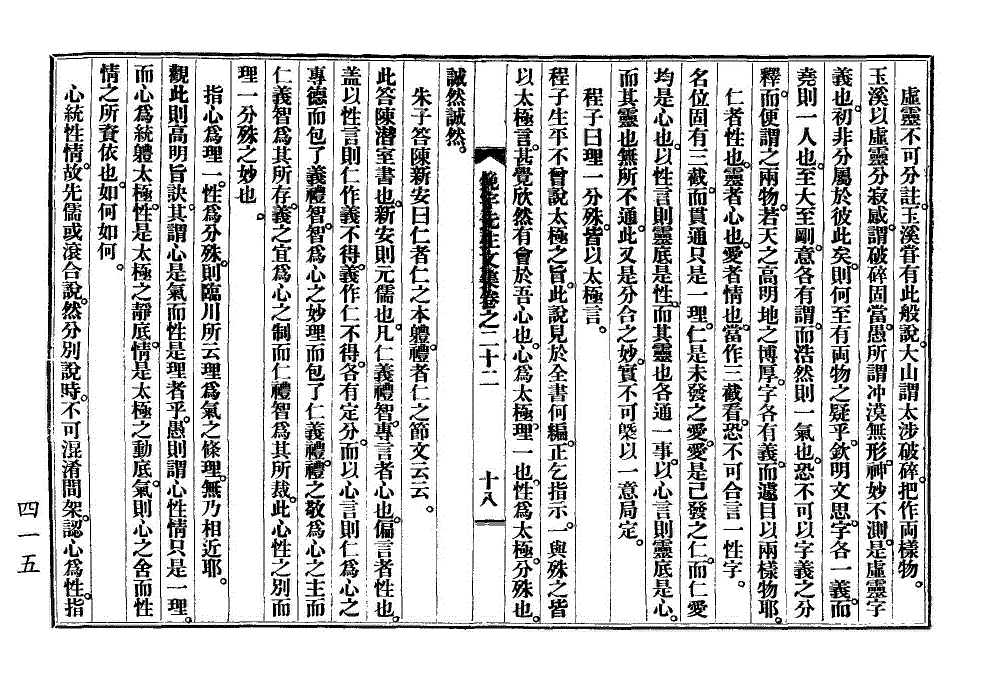 虛靈不可分註。玉溪甞有此般說。大山謂太涉破碎。把作兩樣物。
玉溪以虛靈分寂感。謂破碎固當。愚所謂冲漠無形。神妙不測。是虛靈字
義也。初非分屬於彼此矣。則何至有兩物之疑乎。欽明文思。字各一義。而
堯則一人也。至大至剛。意各有謂。而浩然則一氣也。恐不可以字義之分
釋。而便謂之兩物。若天之高明。地之博厚。字各有義。而遽目以兩樣物耶。
仁者性也。靈者心也。愛者情也。當作三截看。恐不可合言一性字。
名位固有三截。而貫通只是一理。仁是未發之愛。愛是已發之仁。而仁愛
均是心也。以性言則靈底是性。而其靈也各通一事。以心言則靈底是心。
而其靈也無所不通。此又是分合之妙。實不可槩以一意局定。
程子曰理一分殊。皆以太極言。
程子生平不曾說太極之旨。此說見於全書何編。正乞指示。一與殊之皆
以太極言。甚覺欣然有會於吾心也。心爲太極。理一也。性爲太極。分殊也。
先生文集卷之二十二
十八
誠然誠然。
朱子答陳新安曰仁者仁之本體。禮者仁之節文云云。
此答陳潛室書也。新安則元儒也。凡仁義禮智。專言者心也。偏言者性也。
盖以性言則仁作義不得。義作仁不得。各有定分。而以心言則仁爲心之
專德而包了義禮智。智爲心之妙理而包了仁義禮。禮之敬爲心之主而
仁義智爲其所存。義之宜爲心之制而仁禮智爲其所裁。此心性之別而
理一分殊之妙也。
指心爲理一。性爲分殊。則臨川所云理爲氣之條理。無乃相近耶。
觀此則高明旨訣。其謂心是氣而性是理者乎。愚則謂心性情只是一理。
而心爲統體太極。性是太極之靜底。情是太極之動底。氣則心之舍而性
情之所資依也。如何如何。
心統性情。故先儒或滾合說。然分別說時。不可混淆間架。認心爲性。指
四一五